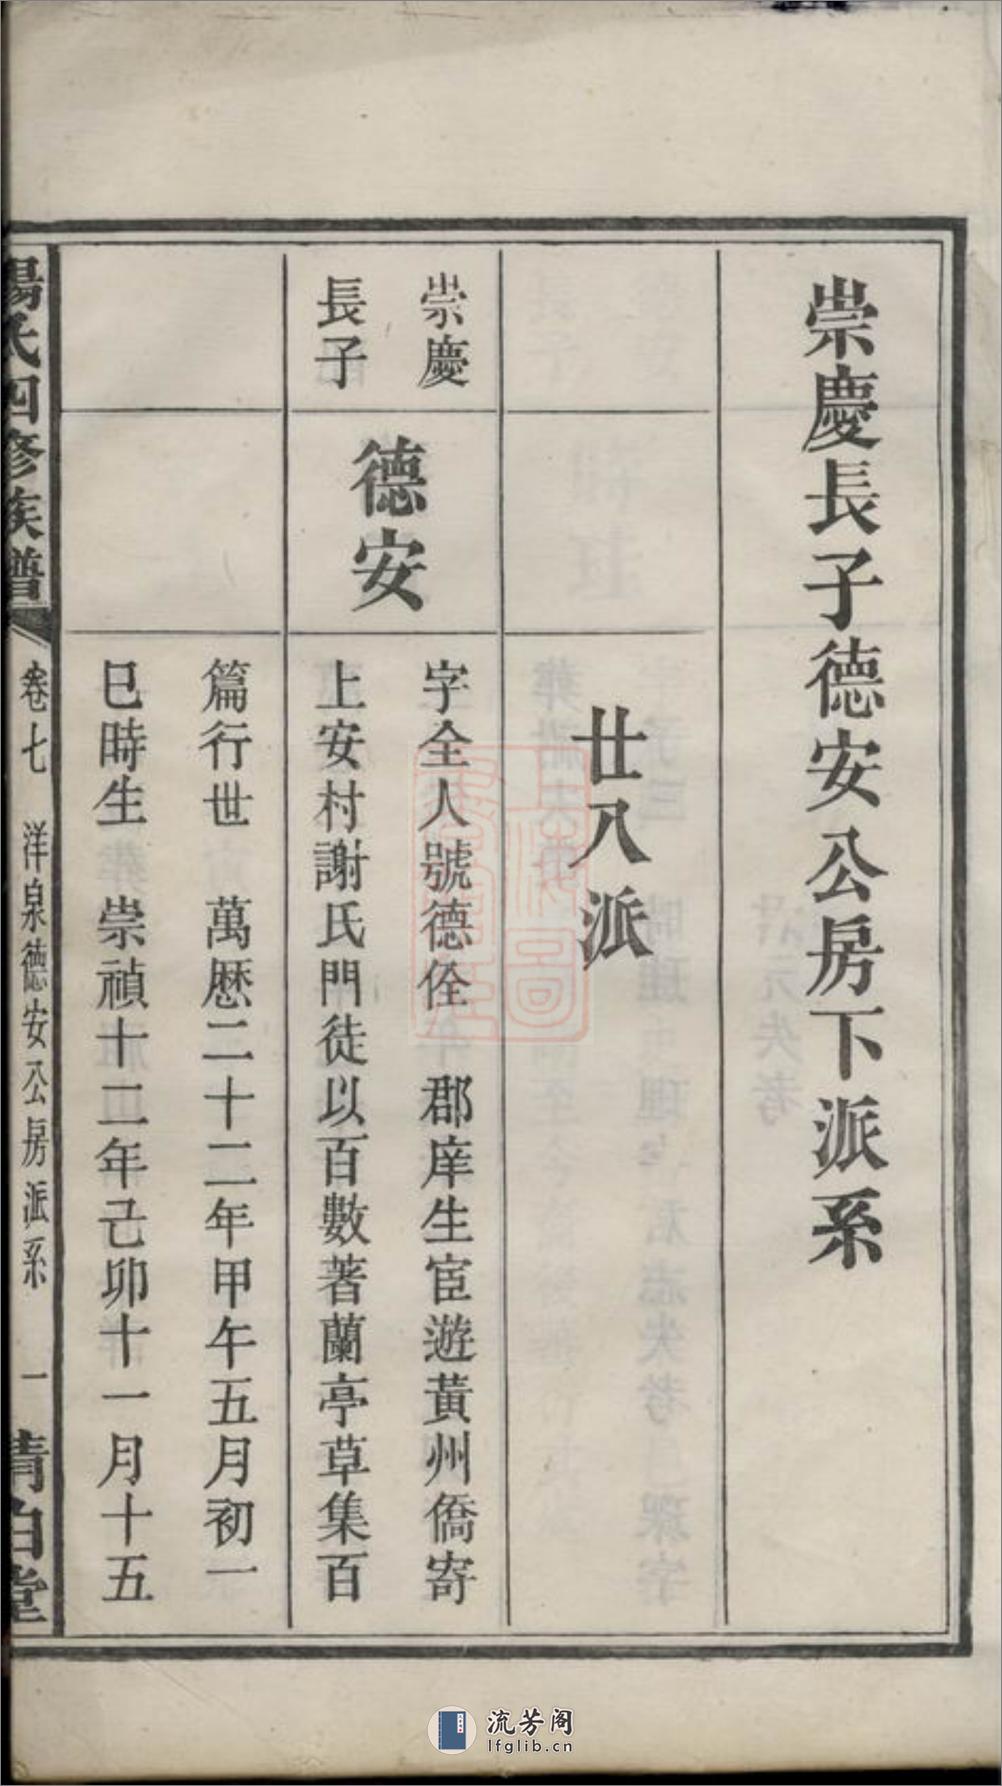 崇慶長子德安公房下派系
廿八派
崇慶
長子
德安
字全人號德佺　郡庠生宦遊黃州僑寄
上安村謝氏門徒以百數著蘭亭草集百
篇行世　萬歷二十二年甲午五月初一
巳時生　崇禎十二年己卯十一月十五
楊氏四修族譜
卷七　洋泉德安公房派系　一
清白堂
流芳阁
lfglib.cn